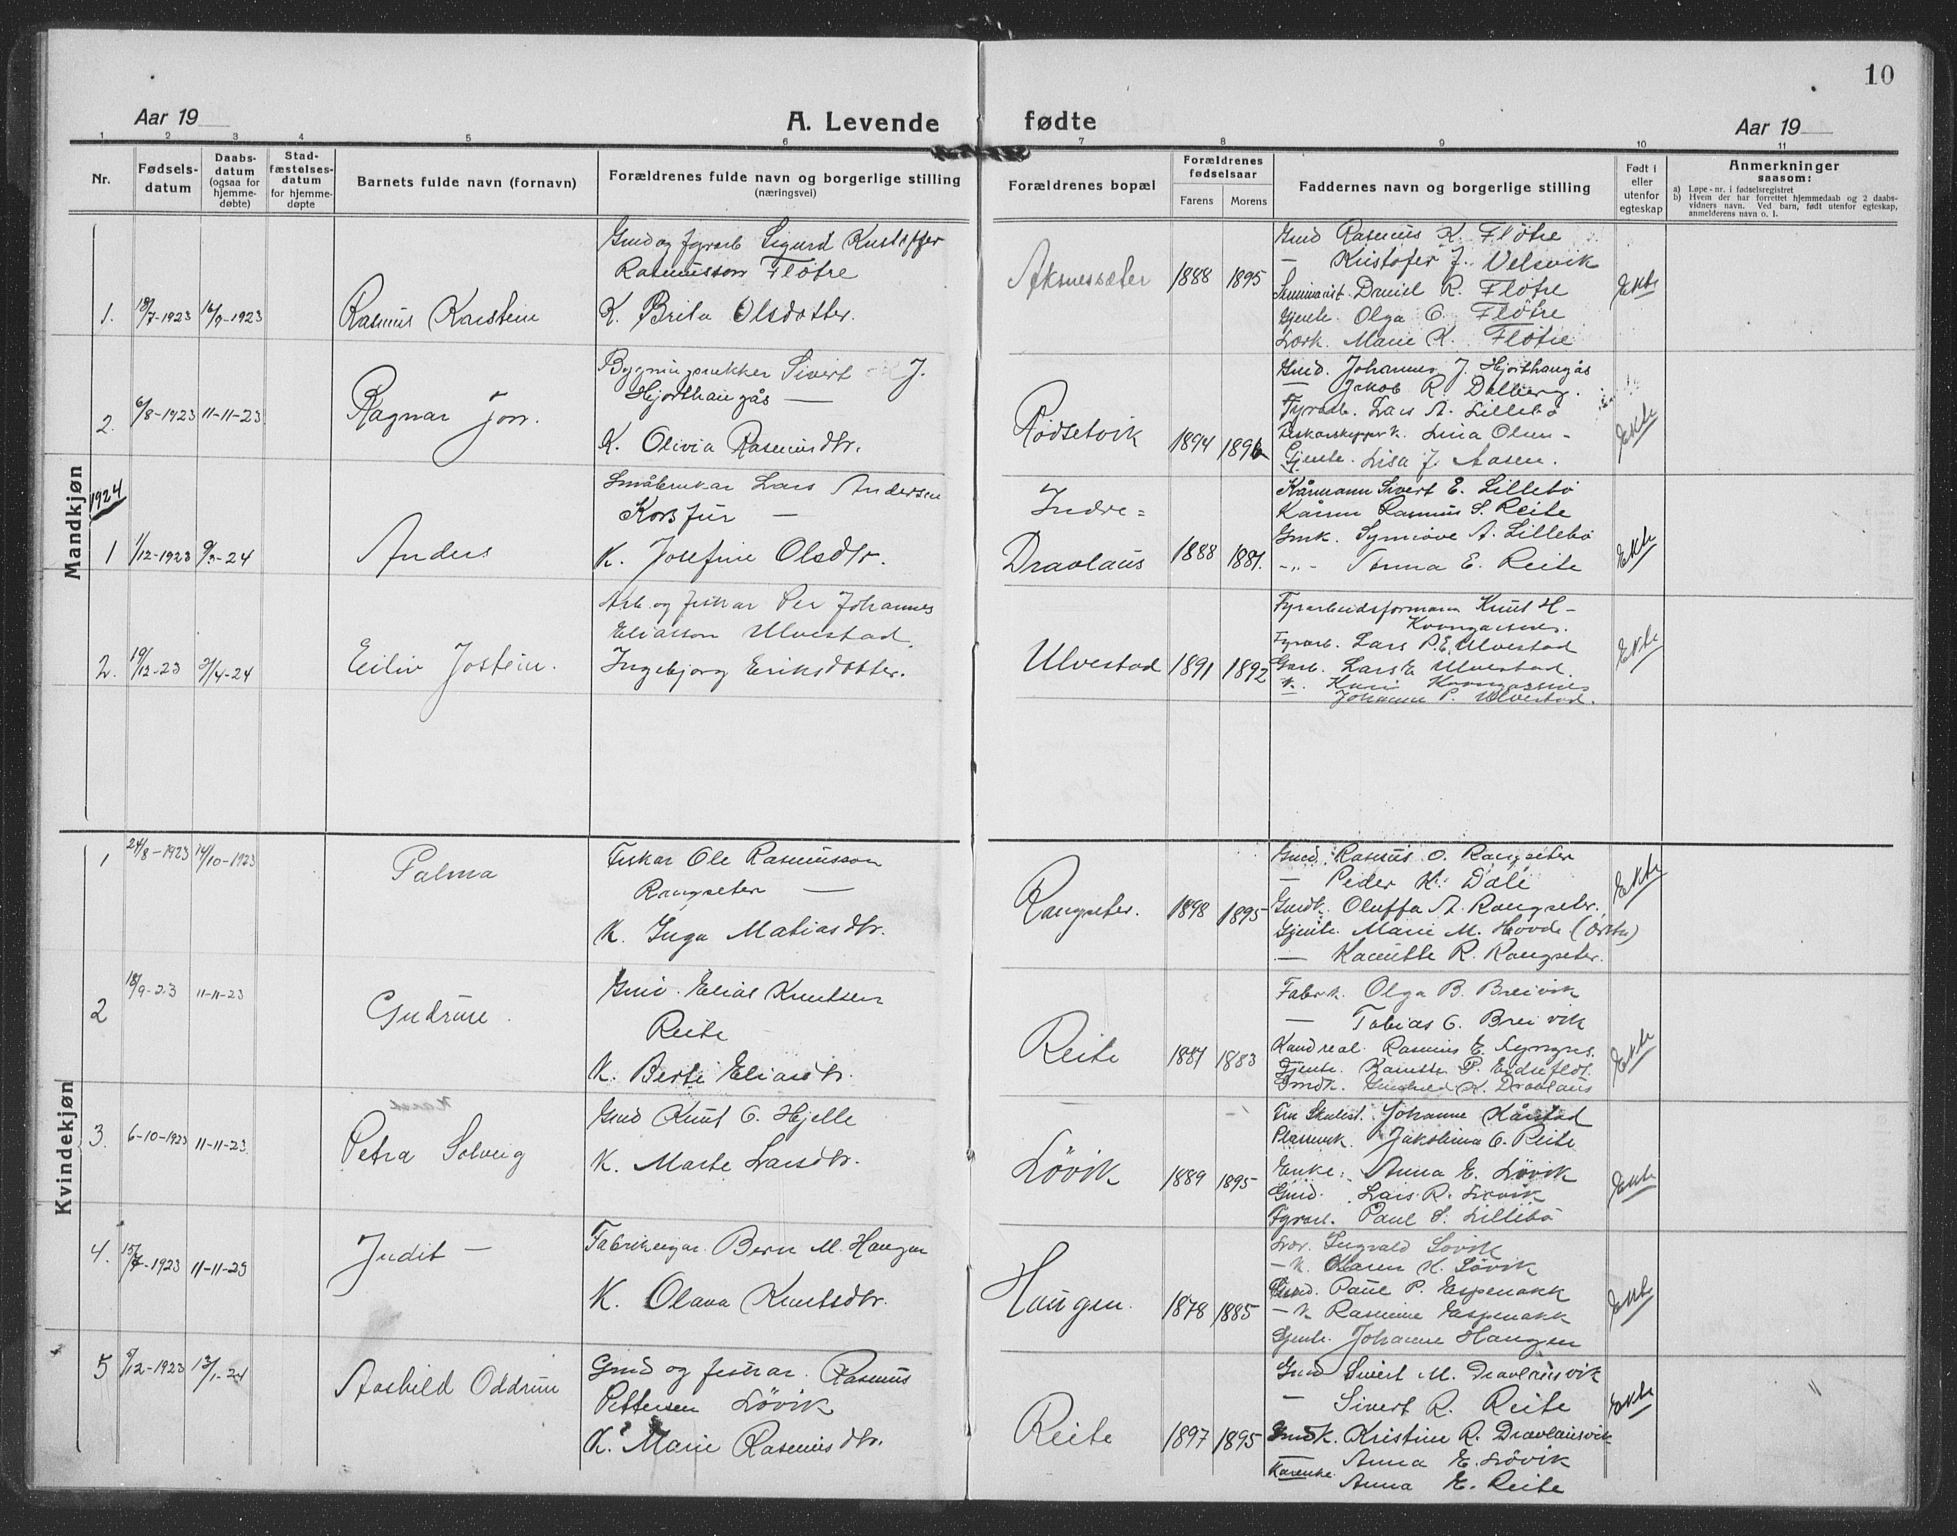 10
Aar 19
A. Levende fødte
Aar 19
1 2 3 4 5 6 7 8 9 10 11
Nr.
Fødsels-
datum
Daabs-
datum
(ogsaa for
hjemme-
døbte)
Stad-
fæstelses-
datum
for hjemme-
døpte
Barnets fulde navn (fornavn)
Forældrenes fulde navn og borgerlige stilling
(næringsvei)
Forældrenes bopæl
Forældrenes
fødselsaar
Farens Morens
Faddernes navn og borgerlige stilling
Født i
eller
utenfor
egteskap
Anmerkninger
saasom:
a) Løpe-nr. i fødselsregistret
b) Hvem der har forrettet hjemmedaab og 2 daabs-
vidners navn. Ved barn, født utenfor egteskap,
anmelderens navn o. l.
Mandkjøn
1. 18/7-1923 16/9-1923
Rasmus Karstein
Gmd og fyrarb Sigurd Kristoffer
Rasmusson Fløtre
K. Brita Olsdotter.
Aksnessæter 1888 1895
Gmd Rasmus K. Fløtre
— Kristofer J. Velsvik
Daniel R. Fløtre
Gjente. Olga O. Fløtre
Marie K. Fløtre
Ekte
2. 6/8-1923 11-11-23
Ragnar Jon.
Sivert J.
Hjorthaugås —
K. Olivia Rasmusdtr.
Rødsetvik 1894 1896
Gmd. Johannes J. Hjorthaugås
— Jakob R. Dalberg.
Fyrarb. Lars A. Lillebø
Lina Olsen -
Gjente. Lisa J. Aasen.
Ekte
1924
1 1/12-1923 9/3-24
Anders
Småbrukar Lars Andersen
Korsfur —
K. Josefine Olsdtr.
Indre =
Dravlaus 1888 1881.
Kårmann Sivert E. Lillebø
Kårm Rasmus S. Reite
Gmk. Synnøve A. Lillebø
-"- Anna E. Reite
Ekte
2. 19/12-23 2/4-24
Eiliv Jostein.
Arb. og fiskar Per Johannes
Eliasson Ulvestad
Ingebjørg Eriksdotter.
Ulvestad 1891 1892
Fyrarbeidsformann Knut H-
Fyrarb. Lars P.E. Ulvestad
Lars E Ulvestad.
Johanne P. Ulvestad.
Ekte
Kvindekjøn
1 24/8-1923 14/10-1923
Palma
Fiskar Ole Rasmusson
Rangseter —
K. Inga Matiasdtr.
Rangseter. 1898 1895
Gmd. Rasmus O. Rangseter
— Peder K. Dale
Gmdk. Oluffa A. Rangseter.
Gjente. Marie M. Hovde (Ørsta)
— Kamille R. Rangseter.
Ekte
2 18/9-23 11-11-23
Gudrun.
Gmd. Elias Knutsen
Reite
K. Berte Eliasdtr.
Reite 1881 1883
Fabr. k. Olga B. Breivik
— Tobias G. Breivik
Kand real. Rasmus E.
Gjente.
Gmdk. Gunhild K. Dravlaus
Ekte
3. 6-10-1923 11-11-23.
Petra Solveig
Gmd Knut O. Hjelle
K. Marte Larsdtr.
Løvik 1889 1895
Johanne Kårstad
Jakobina O. Reite
Enke. Anna E. Løvik
Gmd. Lars R. Løvik
Fyrarb. Paul S. Lillebø
Ekte
4. 15/7-1923 11-11-23
Judit —
Fabrikeigar. Bern M. Haugen
K. Olava Knutsdtr.
Haugen. 1878 1885
Lær. Ingvald Løvik
— k. Maren K. Løvik
Gmd. Paul P. Espenakk
— k Rasmine Espenakk
Gjente. Johanne Haugen
Ekte
5 9/12-1923 13/1-24
Aashild Oddrun
Gmd og fiskar. Rasmus
Pettersen Løvik
K. Marie Rasmusdtr.
Reite 1897 1895
Gmd Sivert M. Dravlausvik
— Sivert R. Reite
Gmdk. Kristine R. Dravlausvik
— Anna E. Løvik
Kårenke. Anna E. Reite
Ekte